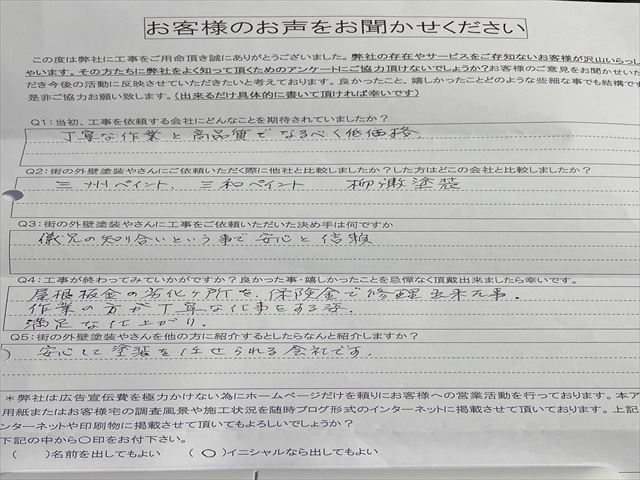 お客様のお声をお聞かせください
この度は弊社に工事をご用命頂き誠にありがとうございました。弊社の存在やサービスをご存知ないお客様が沢山いらっし
ゃいます。その方たちに弊社をよく知って頂くためのアンケートにご協力頂けないでしょうか?お客様のご意見をお聞かせいた
だき今後の活動に反映させていただきたいと考えております。良かったこと、嬉しかったことどのような些細な事でも結構です
是非ご協力お願い致します。(出来るだけ具体的に書いて頂ければ幸いです)
Q1:当初、工事を依頼する会社にどんなことを期待されていましたか?
丁寧な作業と高品質でなるべく低価格
Q2:街の外壁塗装やさんにご依頼いただく際に他社と比較しましたか?した方はどこの会社と比較しましたか?
三州ペイント、三和ペイント 柳瀬塗装
Q3:街の外壁塗装やさんに工事をご依頼いただいた決め手は何ですか
儀兄の知り合いという事で安心と信頼
Q4:工事が終わってみていかがですか?良かった事・嬉しかったことを忌憚なく頂戴出来ましたら幸いです。
屋根板金の劣化ヶ所を、保険金で修理出来た事。
作業の方が丁寧な仕事をする姿。
満足な仕上がり。
Q5:街の外壁塗装やさんを他の方に紹介するとしたらなんと紹介しますか?
安心して塗装を任せられる会社です。
*弊社は広告宣伝費を極力かけない為にホームページだけを頼りにお客様への営業活動を行っております。本ア
用紙またはお客様宅の調査風景や施工状況を随時ブログ形式のインターネットに掲載させて頂いております。上記
ンターネットや印刷物に掲載させて頂いてもよろしいでしょうか?
下記の中から○印をお付下さい。
( )名前を出してもよい (○)イニシャルなら出してもよい